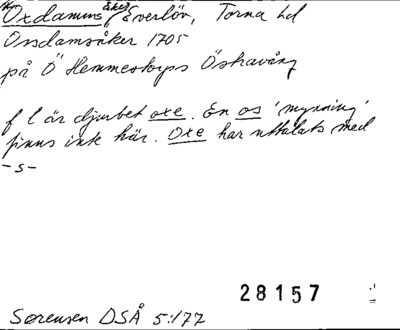 Oxdamms åker, Everlöv, Torna hd
Onsdamsåker 1705
på Ö Hemmestorps Östravång
f l är djurbet oxe. En os 'mynning'
finns inte här. Oxe har uttalats med
-s-
28157
Sørensen DSÅ 5:177